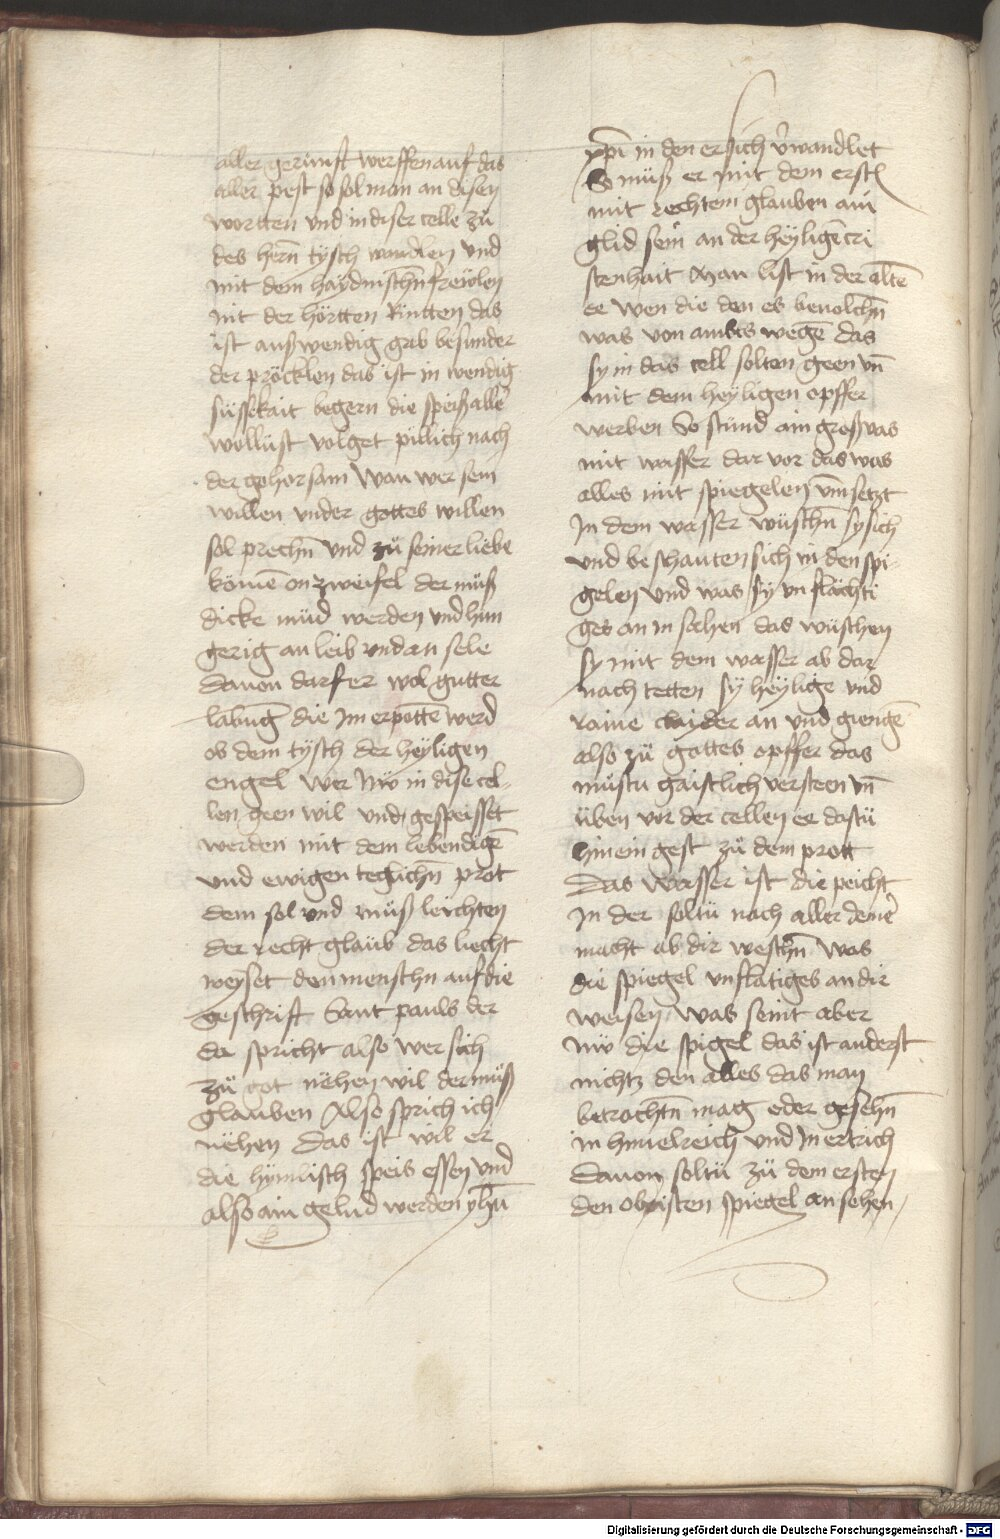 aller gerunft werffen auf das
aller pest so sol man an disen
wortten vnd in diser celle zü
des hern̄ tysch wandlen vnd
mit dem haydnisch̄n freẅlen
nit der hörtten Rintten das
ist ausswendig grb besunder
der pröcklen das ist in wendig
süssekait begern die speiß aller
wollust volget pillich nach
der gehorsam Wan wer sein
willen vnder gottes willen
sol prech̄n vnd zü seiner liebe
kömē on zweifel der müß
dicke müd werden vnd hun
gerig an leib vnd an sele
Dauon darf er wol gutter
labūg die Im erpottē werd
ob dem tysch der heyligen
engel Wer Nw in dise cel-
len geen wil vnd gespeisset
werden mit dem lebendigē
vnd ewigen teglich̄n prot
dem sol vnd müß leichten
der recht glaub das liecht
weyset den mensch̄n auf die
geschrift Sant pauls der
da spricht also wer sich
zü got nëhen wil der müß
glauben Also sprich ich
nëhen Das ist wil er
die hymlisch speis essen vnd
also ain gelid werden yhū
xp̄i in den er sich v̉wandlet
So müß er mit dem erst̄
mit rechtem glauben ain
glid sein an der heyligē cri
stenhait Man list in der altē
ee wen die den es beuolch̄n
was von ambts wegē das
sy in das cell solten geen vn̄
mit dem heyligen opffer
werben So stünd ain groß vas
mit wasser dar vor das was
alles mit spiegelen vm̄setzt
In dem wasser wüsch̄n sy sich
vnd beschauten sich in den spi-
gelen vnd was sy vnflächti
ges an in sahen das wüschen
sy mit dem wasser ab dar
nach tetten sy heylige vnd
raine claider an vnd giengē
also zü gottes opffer das
müstu gaistlich versteen vn̄
üben vor der cellen ee dastü
hinein gest zü dem prott
Das wasser ist die peicht
In der soltü nach aller deiner
macht ab dir wesch̄n was
die spiegel vnflatiges an dir
weisen was seint aber
nw die spigel das ist anderst
nichtz den alles das man
betracht̄n mag oder geseh̄n
in himelreich vnd In ertrich
Dauon soltü zü dem ersten
den obristen spiegel ansehen
Digitalisierung gefördert durch die Deutsche Forschungsgemeinschaft - DFG